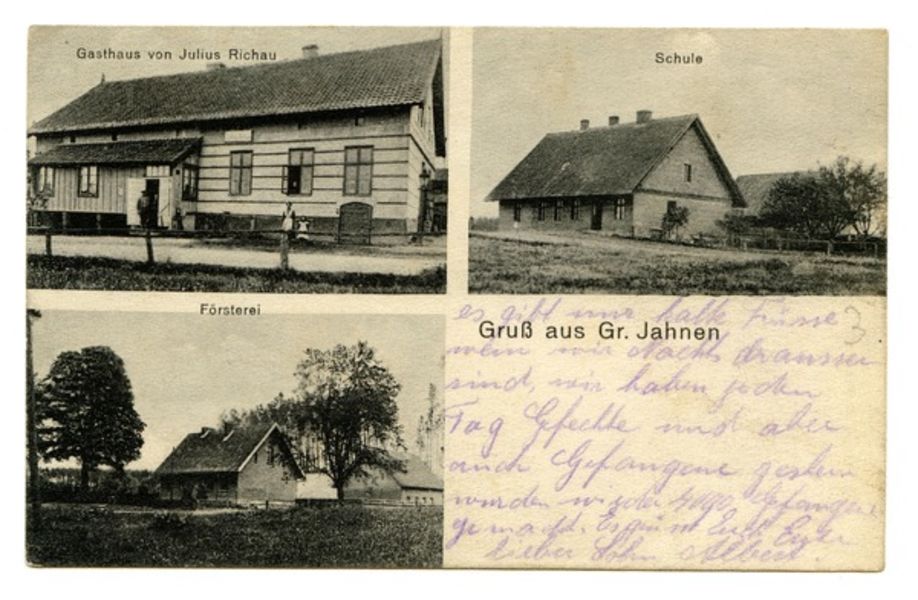 Gasthaus von Julius Richau
Schule
Försterei
Gruß aus Gr. Jahnen
3
es gibt nur kalte Füsse
wenn wir Nachts draussen
sind, wir haben jeden
Tag Gefechte und aber
auch Gefangene gestern
wurden wieder 4000 Gefangene
gemacht. Es grüsst Euch Euer
lieber Sohn Albert.